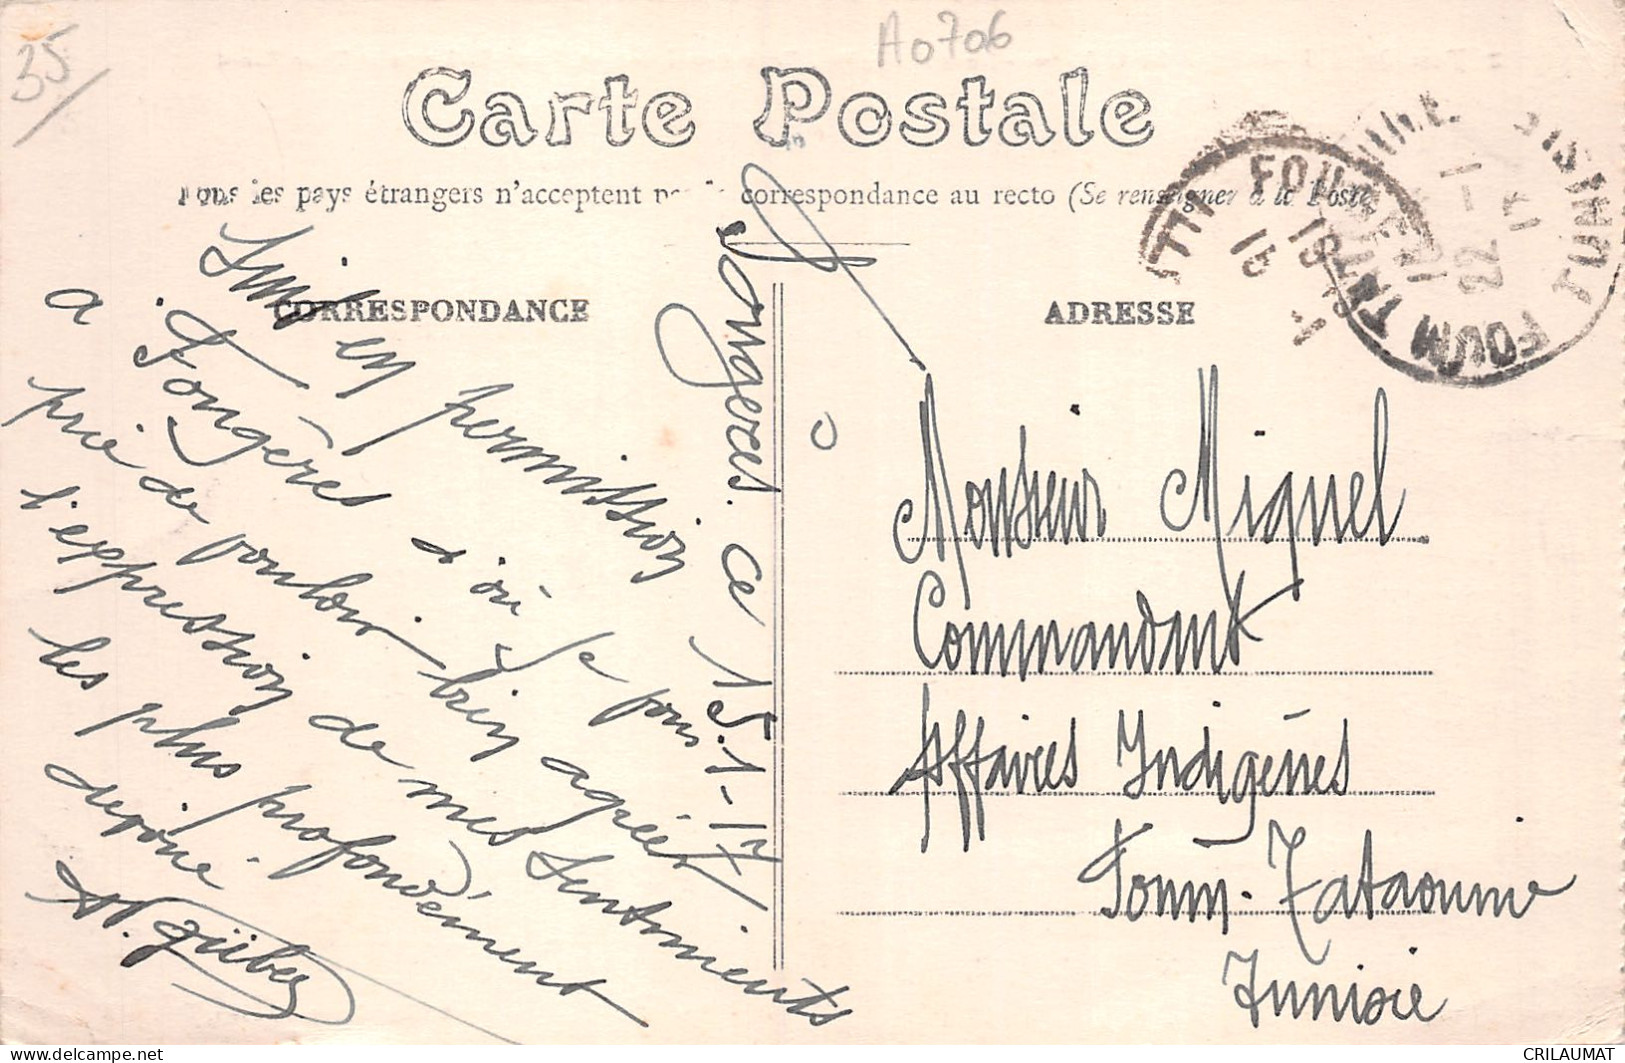 35
A0706
Carte Postale
Tous les pays étrangers n'acceptent pas la correspondance au recto (Se renseigner à la Poste)
CORRESPONDANCE
ADRESSE
Fougères. Ce 15-1-17
Suis en permission
à Fougères d'où je vous
prie de vouloir bien agréer
l'expression de mes Sentiments
les plus profondément
dévoué
Monsieur Miquel
Commandant
Affaires Indigènes
Foum-Tataouine
Tunisie
FOUGERES
16
FOUM TATAHOUINE
22 -1
17
TUNISIE
delcampe.net
CRILAUMAT